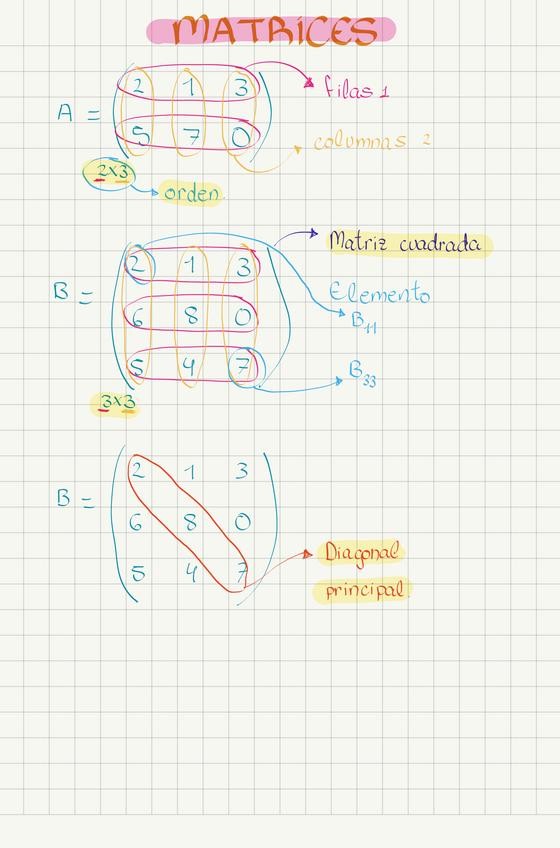 MATRICES
A = ( 2 1 3
5 7 0 )
filas 1
columnas 2
2x3
orden
Matriz cuadrada
B = ( 2 1 3
6 8 0
5 4 7 )
Elemento
B11
B33
3x3
B = ( 2 1 3
6 8 0
5 4 7 )
Diagonal
principal